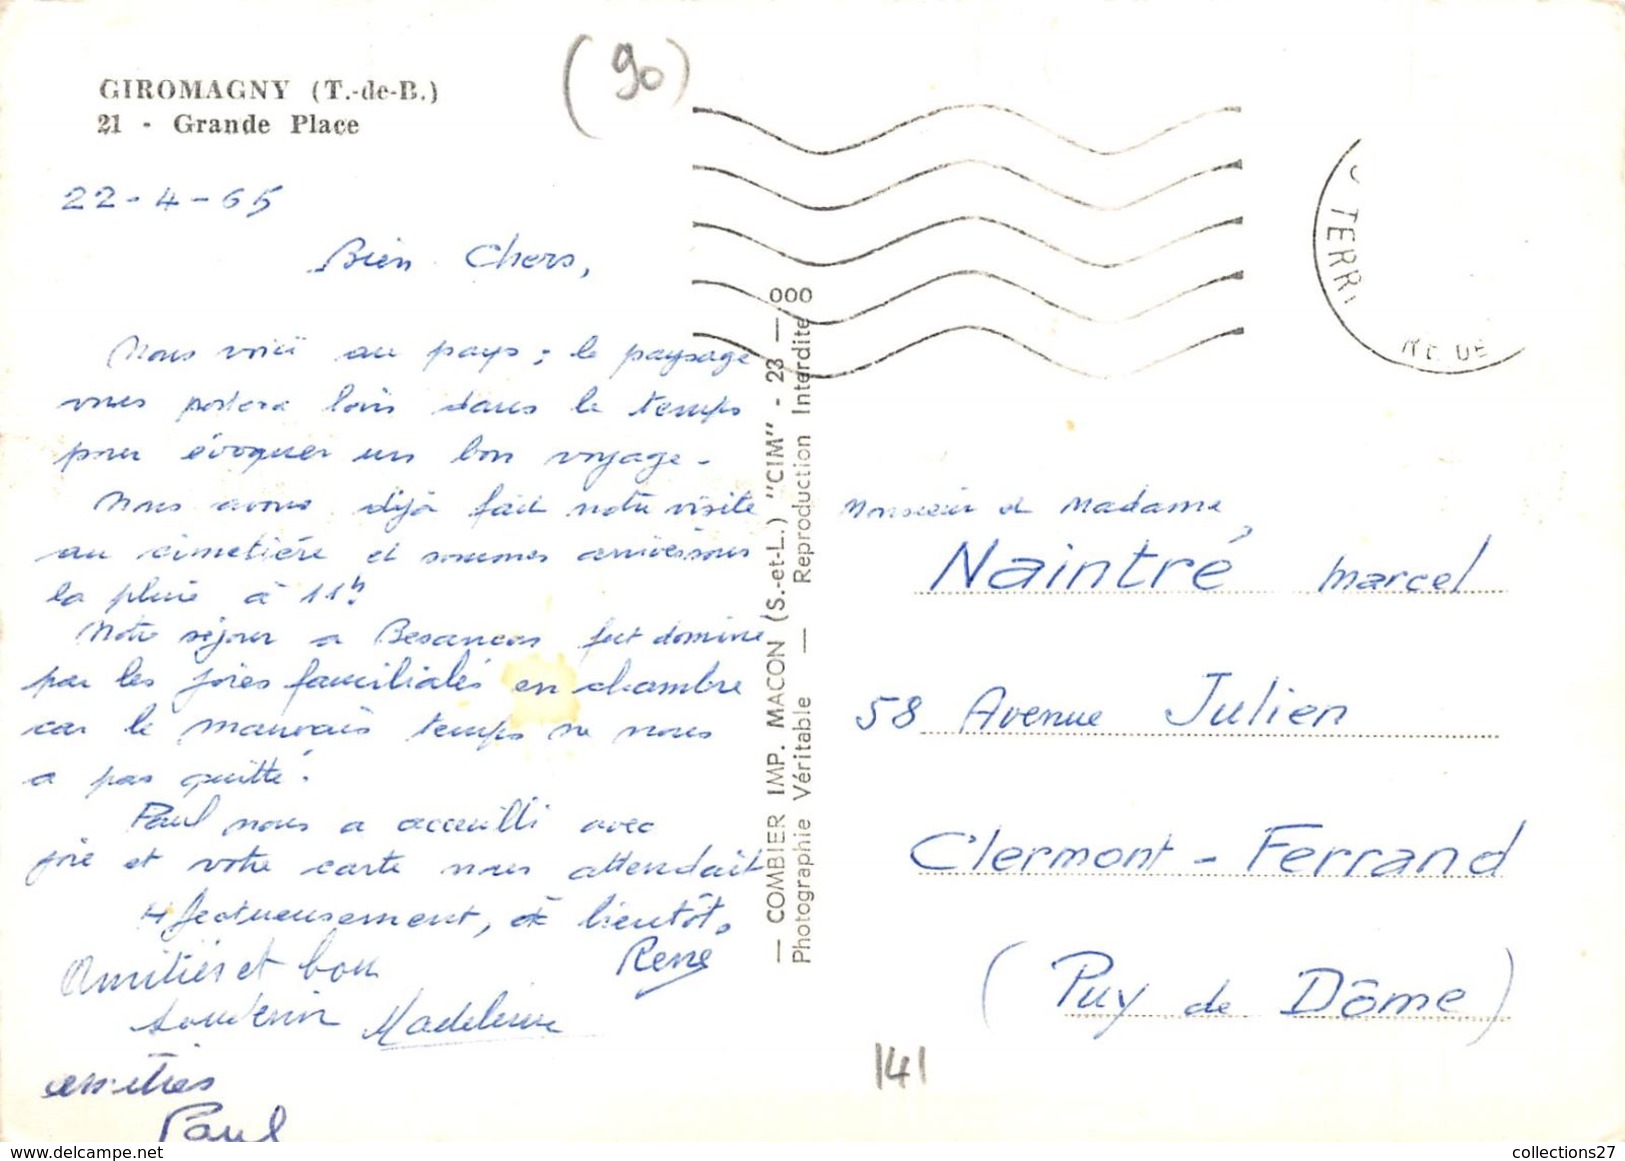 GIROMAGNY (T.-de-B.)
21 - Grande Place
(90)
22-4-65
Bien Chers,
Nous voici au pays ; le paysage
vous portera loin dans le temps
pour évoquer un bon voyage.
Nous avons déjà fait notre visite
au cimetière et sommes arrivés sous
la pluie à 11h.
Notre séjour à Besançon fut dominé
par les joies familiales en chambre
car le mauvais temps ne nous
a pas quitté.
Paul nous a accueilli avec
joie et votre carte nous attendait
Affectueusement, à bientôt.
René
Amitiés et bon
souvenir Madeleine
amitiés
Paul
— COMBIER IMP. MACON (S.-et-L.) "CIM" - 23 — 000
Photographie Véritable — Reproduction Interdite
TERR
RE DE
Monsieur et Madame,
Naintré Marcel
58 Avenue Julien
Clermont-Ferrand
(Puy de Dôme)
141
collections27